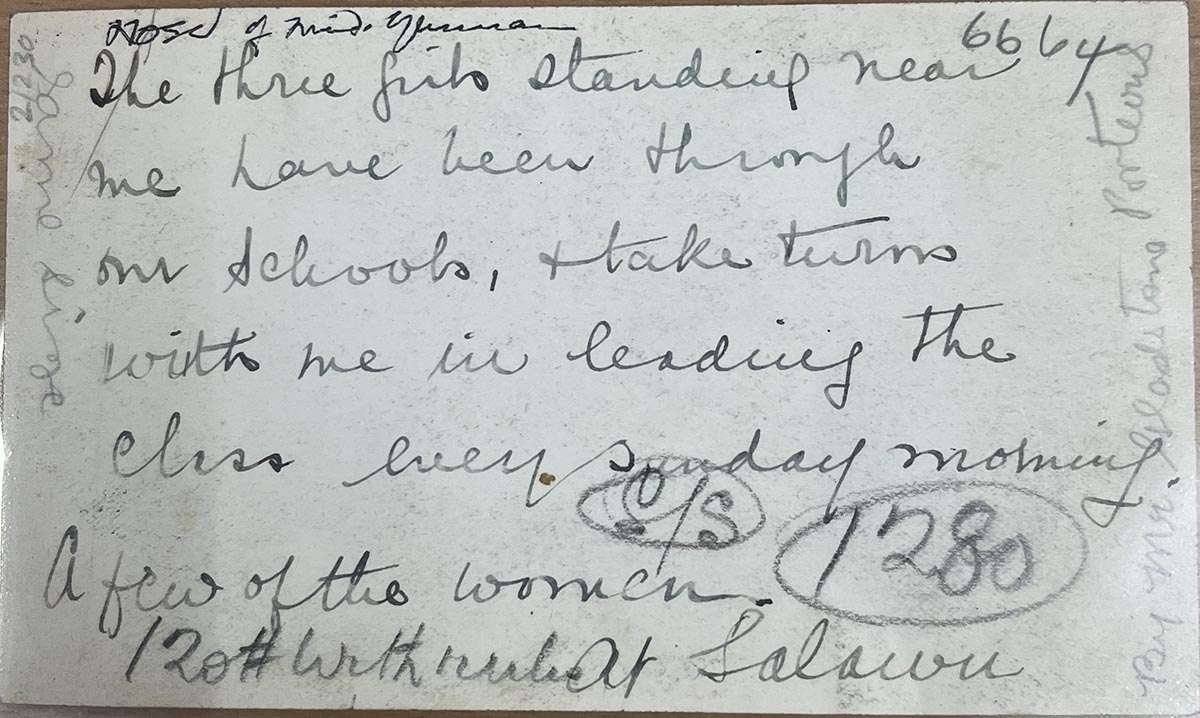 of
6664
The three girls standing near
me have been through
our schools, + take turns
with me in leading the
class every Sunday morning
C/S
1280
A few of the women.
120# With rule At Salowu
21230
Same size
By Mr. Gladstone Porteous